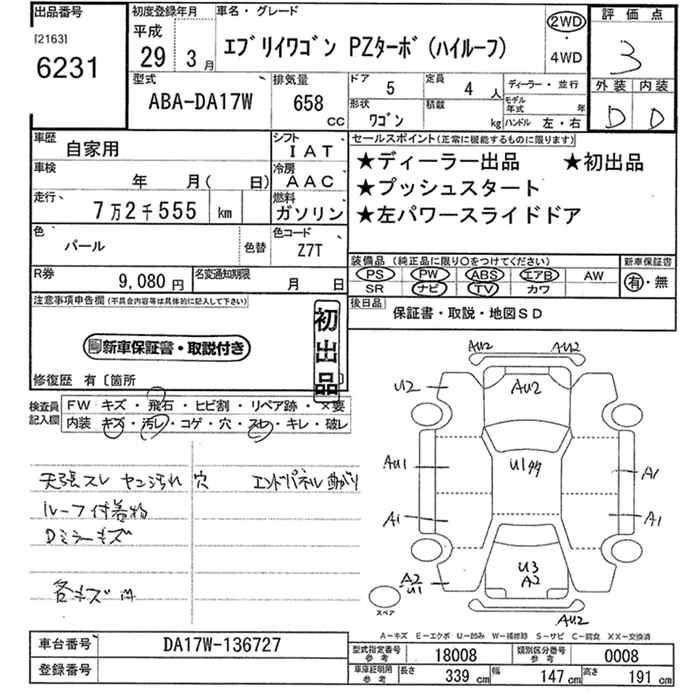 出品番号
[2163]
6231
初度登録年月
平成
29 3月
車名・グレード
エブリイワゴン PZターボ(ハイルーフ)
2WD
・
4WD
評価点
3
外装 内装
D D
型式
ABA-DA17W
排気量
658
cc
ドア 5
定員 4 人
形状
ワゴン
積載
kg
ディーラー・並行
モデル年式 年
ハンドル 左・右
車歴
自家用
シフト
IAT
車検
年 月( 日)
冷房
AAC
走行
7万2千555 km
燃料
ガソリン
色
パール
色替
色コード
Z7T
R券
9,080円
名変通知期限
月 日
セールスポイント(正常に機能するものに限ります)
★ディーラー出品 ★初出品
★プッシュスタート
★左パワースライドドア
装備品 (純正品に限り○をつけてください)
PS PW ABS エアB AW
SR ナビ TV カワ
新車保証書
有・無
後日品
保証書・取説・地図SD
注意事項申告欄(不具合内容等は具体的に記入して下さい)
新車保証書・取説付き
初出品
修復歴 有〔箇所
検査員記入欄
FW キズ・飛石・ヒビ割・リペア跡・×要
内装 キズ・汚レ・コゲ・穴・スレ・キレ・破レ
天張スレ ヤニ汚れ 穴 エンドパネル曲がり
ルーフ付着物
Dミラーキズ
各キズ
AU2 AU2
U2 AU2
AU1 A1
A1 A1
U3
A2
A2
U1
AU2
スペア
A-キズ E-エクボ U-凹み W-補修跡 S-サビ C-腐食 XX-交換済
車台番号
DA17W-136727
登録番号
型式指定番号
参考
18008
類別区分番号
参考
0008
車庫証明用
参考
長さ 339 cm
幅 147 cm
高さ 191 cm